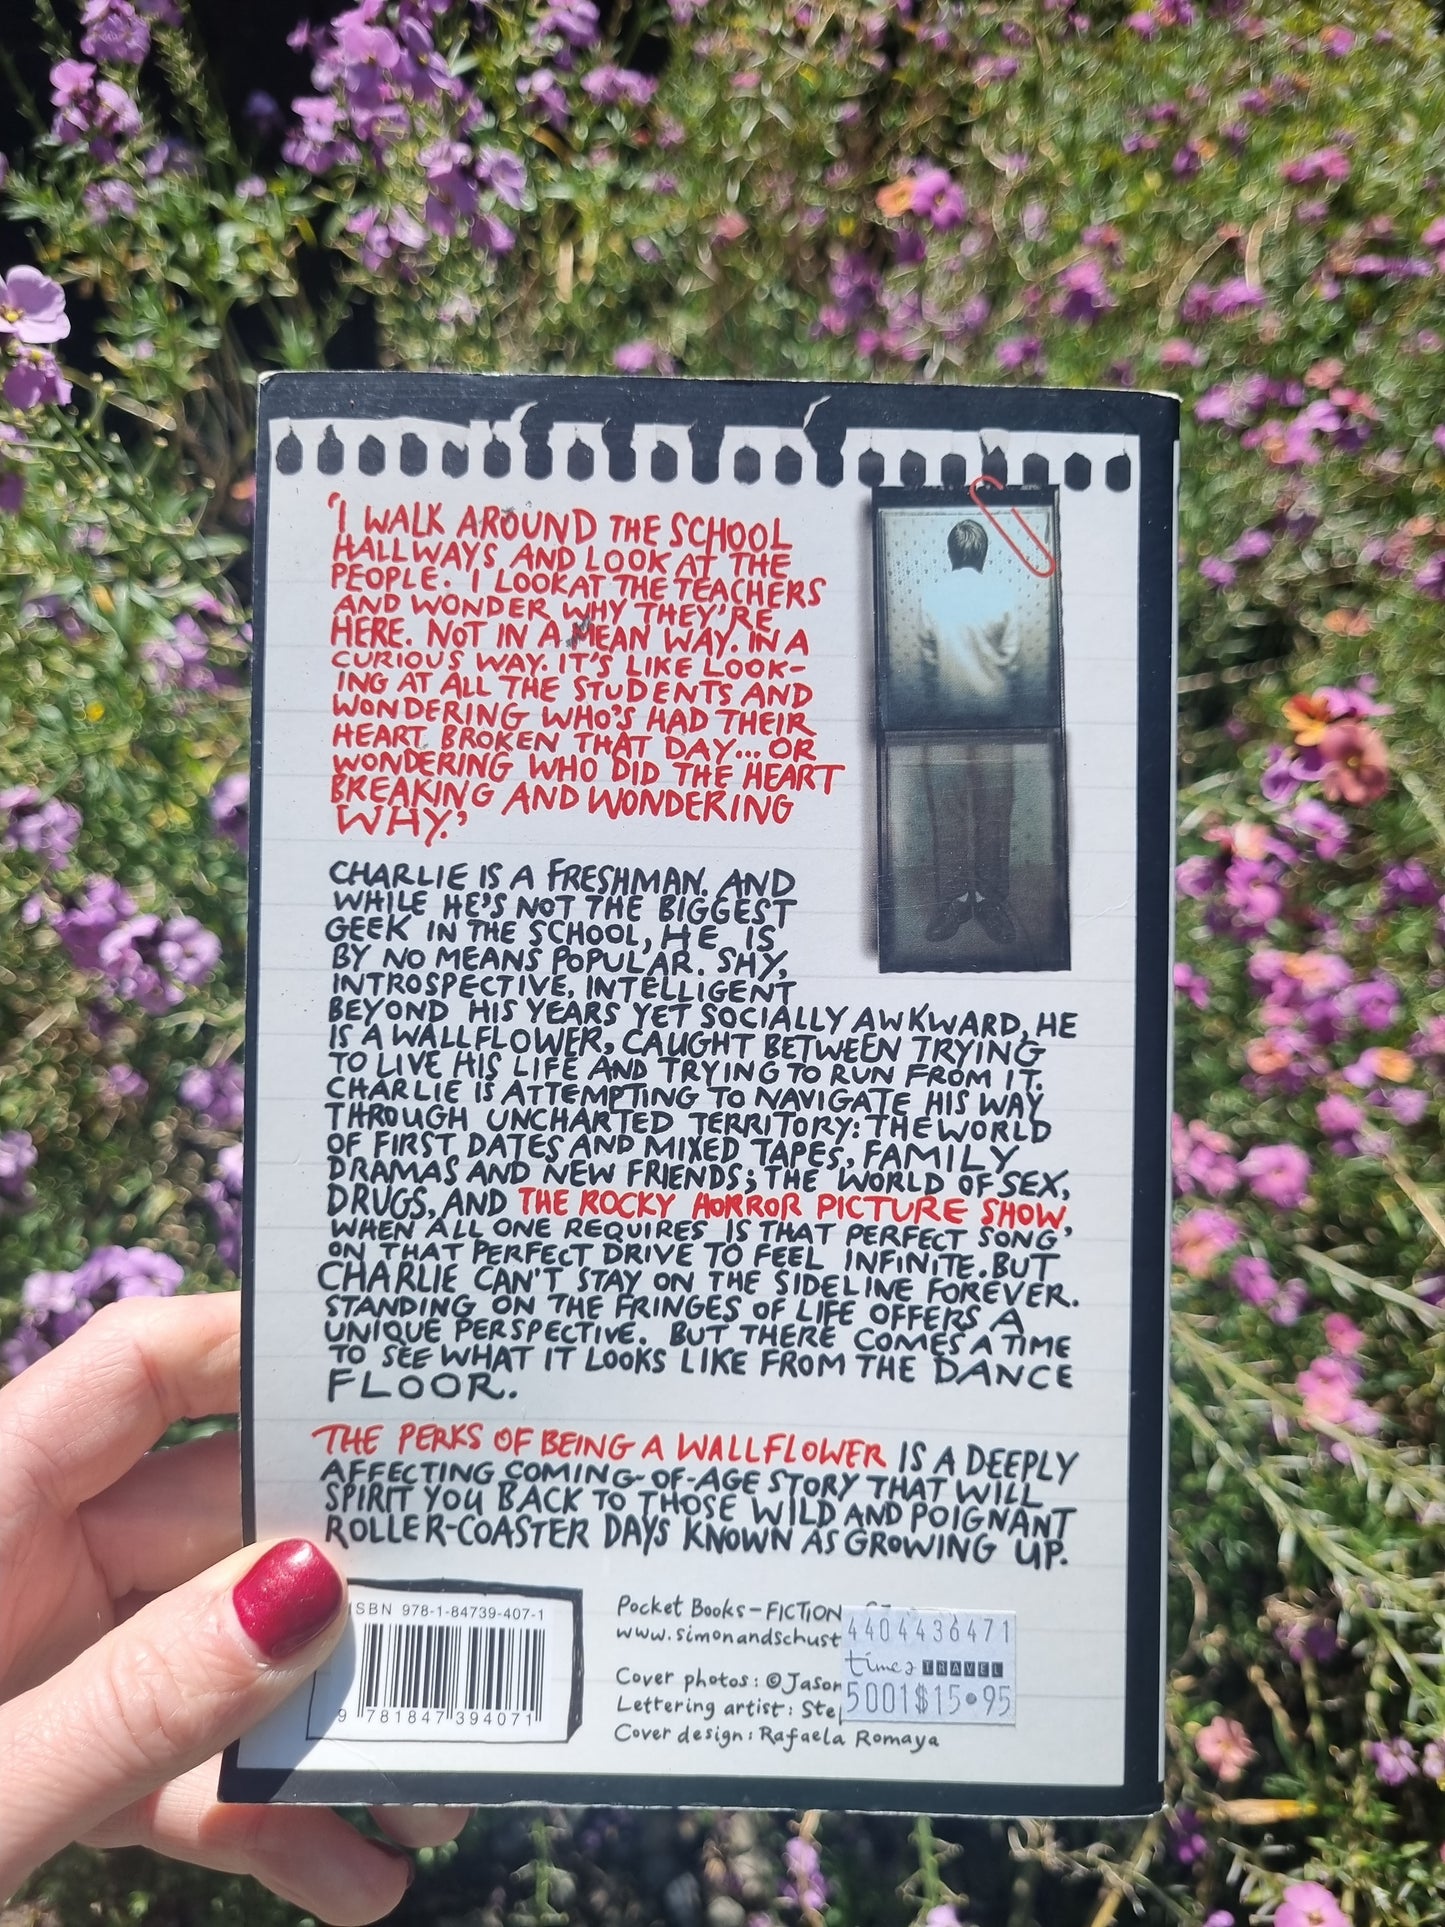 'I WALK AROUND THE SCHOOL
HALLWAYS AND LOOK AT THE
PEOPLE. I LOOK AT THE TEACHERS
AND WONDER WHY THEY'RE
HERE. NOT IN A MEAN WAY. IN A
CURIOUS WAY. IT'S LIKE LOOK-
ING AT ALL THE STUDENTS AND
WONDERING WHO'S HAD THEIR
HEART BROKEN THAT DAY... OR
WONDERING WHO DID THE HEART
BREAKING AND WONDERING
WHY.'
CHARLIE IS A FRESHMAN. AND
WHILE HE'S NOT THE BIGGEST
GEEK IN THE SCHOOL, HE IS
BY NO MEANS POPULAR. SHY,
INTROSPECTIVE, INTELLIGENT
BEYOND HIS YEARS YET SOCIALLY AWKWARD, HE
IS A WALLFLOWER, CAUGHT BETWEEN TRYING
TO LIVE HIS LIFE AND TRYING TO RUN FROM IT.
CHARLIE IS ATTEMPTING TO NAVIGATE HIS WAY
THROUGH UNCHARTED TERRITORY: THE WORLD
OF FIRST DATES AND MIXED TAPES, FAMILY
DRAMAS AND NEW FRIENDS; THE WORLD OF SEX,
DRUGS, AND THE ROCKY HORROR PICTURE SHOW,
WHEN ALL ONE REQUIRES IS THAT PERFECT SONG
ON THAT PERFECT DRIVE TO FEEL INFINITE. BUT
CHARLIE CAN'T STAY ON THE SIDELINE FOREVER.
STANDING ON THE FRINGES OF LIFE OFFERS A
UNIQUE PERSPECTIVE. BUT THERE COMES A TIME
TO SEE WHAT IT LOOKS LIKE FROM THE DANCE
FLOOR.
THE PERKS OF BEING A WALLFLOWER IS A DEEPLY
AFFECTING COMING-OF-AGE STORY THAT WILL
SPIRIT YOU BACK TO THOSE WILD AND POIGNANT
ROLLER-COASTER DAYS KNOWN AS GROWING UP.
ISBN 978-1-84739-407-1
9 781847 394071
Pocket Books - FICTION
www.simonandschust
Cover photos: © Jason
Lettering artist: Ste
Cover design: Rafaela Romaya
4404436471
times TRAVEL
5001$15.95